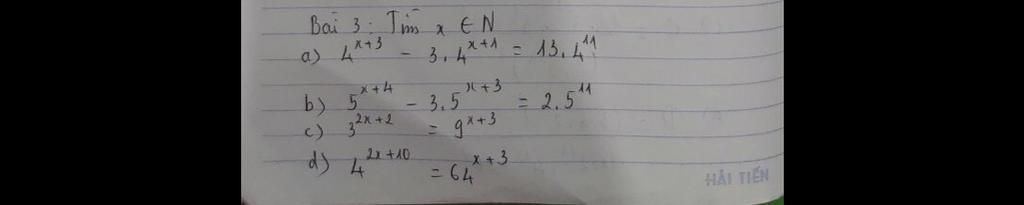 Bài 3: Tìm x ∈ N
a) 4^{x+3} - 3.4^{x+1} = 13.4^{11}
b) 5^{x+4} - 3.5^{x+3} = 2.5^{11}
c) 3^{2x+2} = 9^{x+3}
d) 4^{2x+10} = 64^{x+3}
HẢI TIẾN